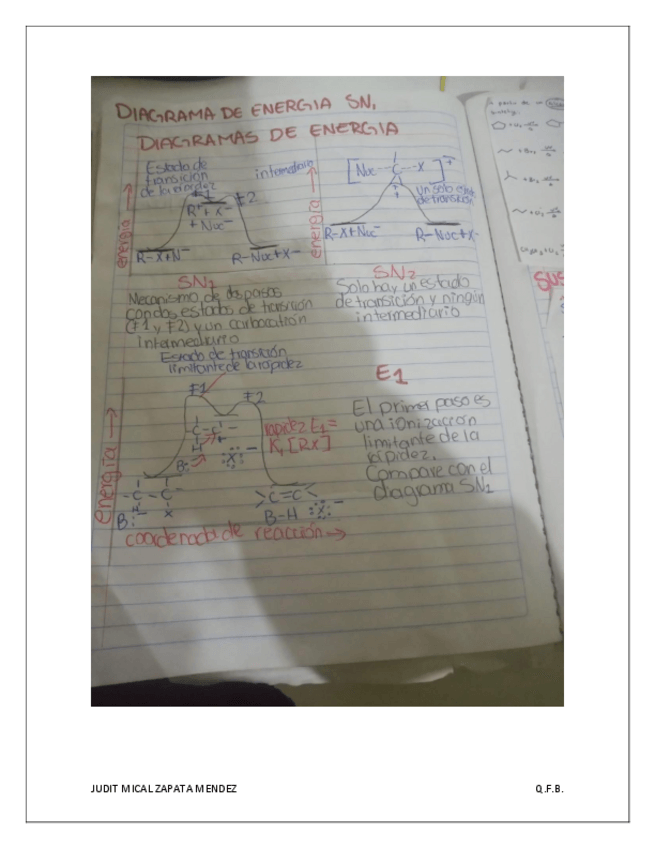 DIAGRAMA DE ENERGIA SN1
DIAGRAMAS DE ENERGIA
Estado de
transición
de la rapidez
‡1
‡2
R⁺ + X⁻
+ Nuc⁻
R-X+N⁻
R-Nuc+X⁻
energía →
energía →
[Nuc---C---X]‡⁻
Un solo
de transición
R-X+Nuc⁻
R-Nuc+X⁻
SN1
Mecanismo de dos pasos
con dos estados de transición
(‡1 y ‡2) y un carbocatión
Intermediario
SN2
Solo hay un estado
de transición y ningún
intermediario
Estado de transición
limitante de la rapidez
‡1
‡2
-C-C-
H
B:
:X:⁻
rapidez E1=
K1[RX]
energía →
-C-C-
H X
B:
>C=C<
B-H :X:⁻
coordenada de reacción →
E1
El primer paso es
una ionización
limitante de la
rapidez.
Compare con el
diagrama SN1
SUS
JUDIT MICAL ZAPATA MENDEZ
Q.F.B.